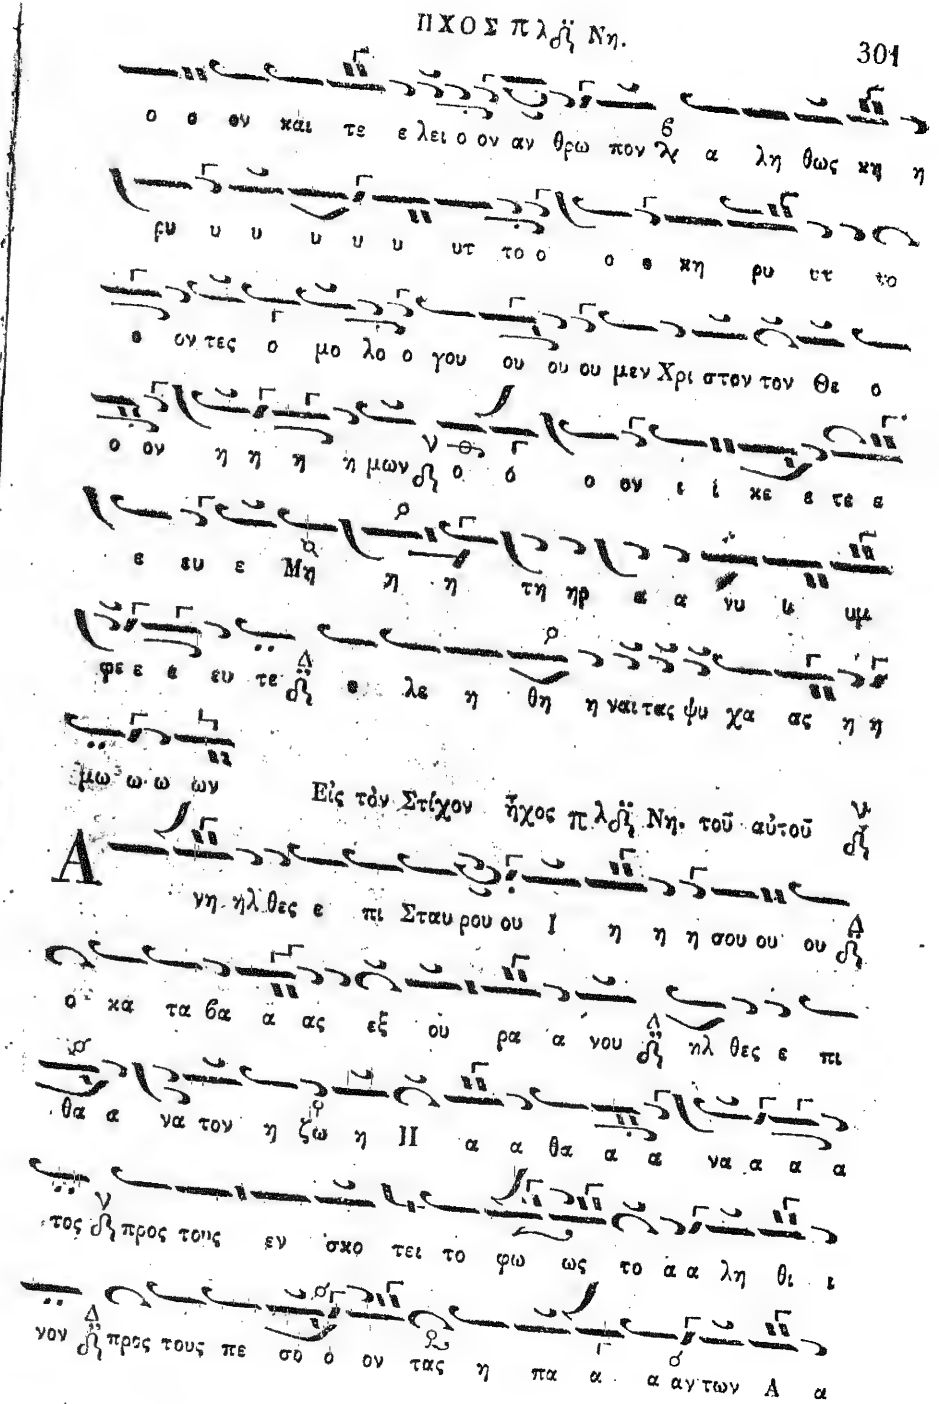 ΠΧΟΣ πλ Νη.
301
ο ο ον και τε ε λει ο ον αν θρω πον α λη θως κη η
ρυ υ υ υ υ υ υτ το ο ο ο κη ρυ υτ το
ο ον τες ο μο λο ο γου ου ου ου μεν Χρι στον τον Θε ο
ο ον η η η η μων ο ο ο ον ι ι κε ε τε ε
ε ευ ε Μη η η τη ηρ α α νυ υ υμ
φε ε ε ευ τε ε λε η θη η ναι τας ψυ χα ας η η
μω ω ω ων
Εἰς τὸν Στίχον ἦχος πλ Νη. τοῦ αὐτοῦ
Α νη ηλ θες ε πι Σταυ ρου ου Ι η η η σου ου ου
ο κα τα βα α ας εξ ου ρα α νου ηλ θες ε πι
θα α να τον η ζω η Η α α θα α α να α α α
τος προς τους εν σκο τει το φω ως το α α λη θι ι
νον προς τους πε σο ο ον τας η πα α α αν των Α α